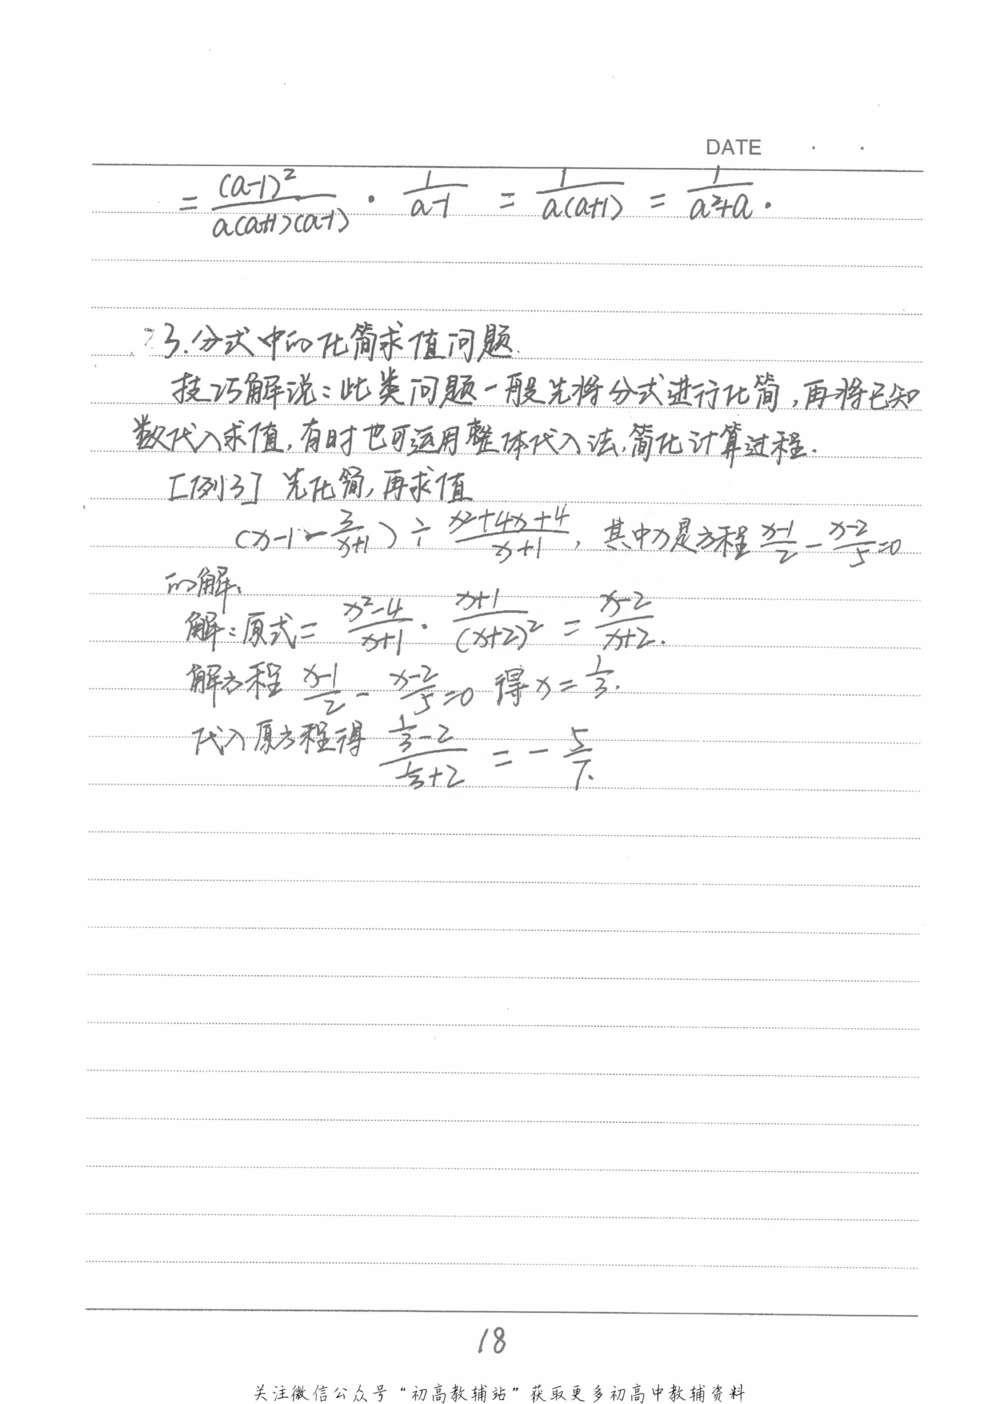 DATE · ·
= (a-1)²/a(a+1)(a-1) · 1/a-1 = 1/a(a+1) = 1/a²+a .
3.分式中的化简求值问题.
技巧解说:此类问题一般先将分式进行化简,再将已知
数代入求值,有时也可运用整体代入法,简化计算过程.
[例3] 先化简,再求值
(x-1-3/x+1) ÷ x²+4x+4/x+1, 其中x是方程 x-1/2 - x-2/5 =0
的解.
解:原式= x²-4/x+1 · x+1/(x+2)² = x-2/x+2.
解方程 x-1/2 - x-2/5 =0 得x= 1/3.
代入原方程得 1/3-2/1/3+2 = - 5/7.
18
关注微信公众号“初高教辅站”获取更多初高中教辅资料